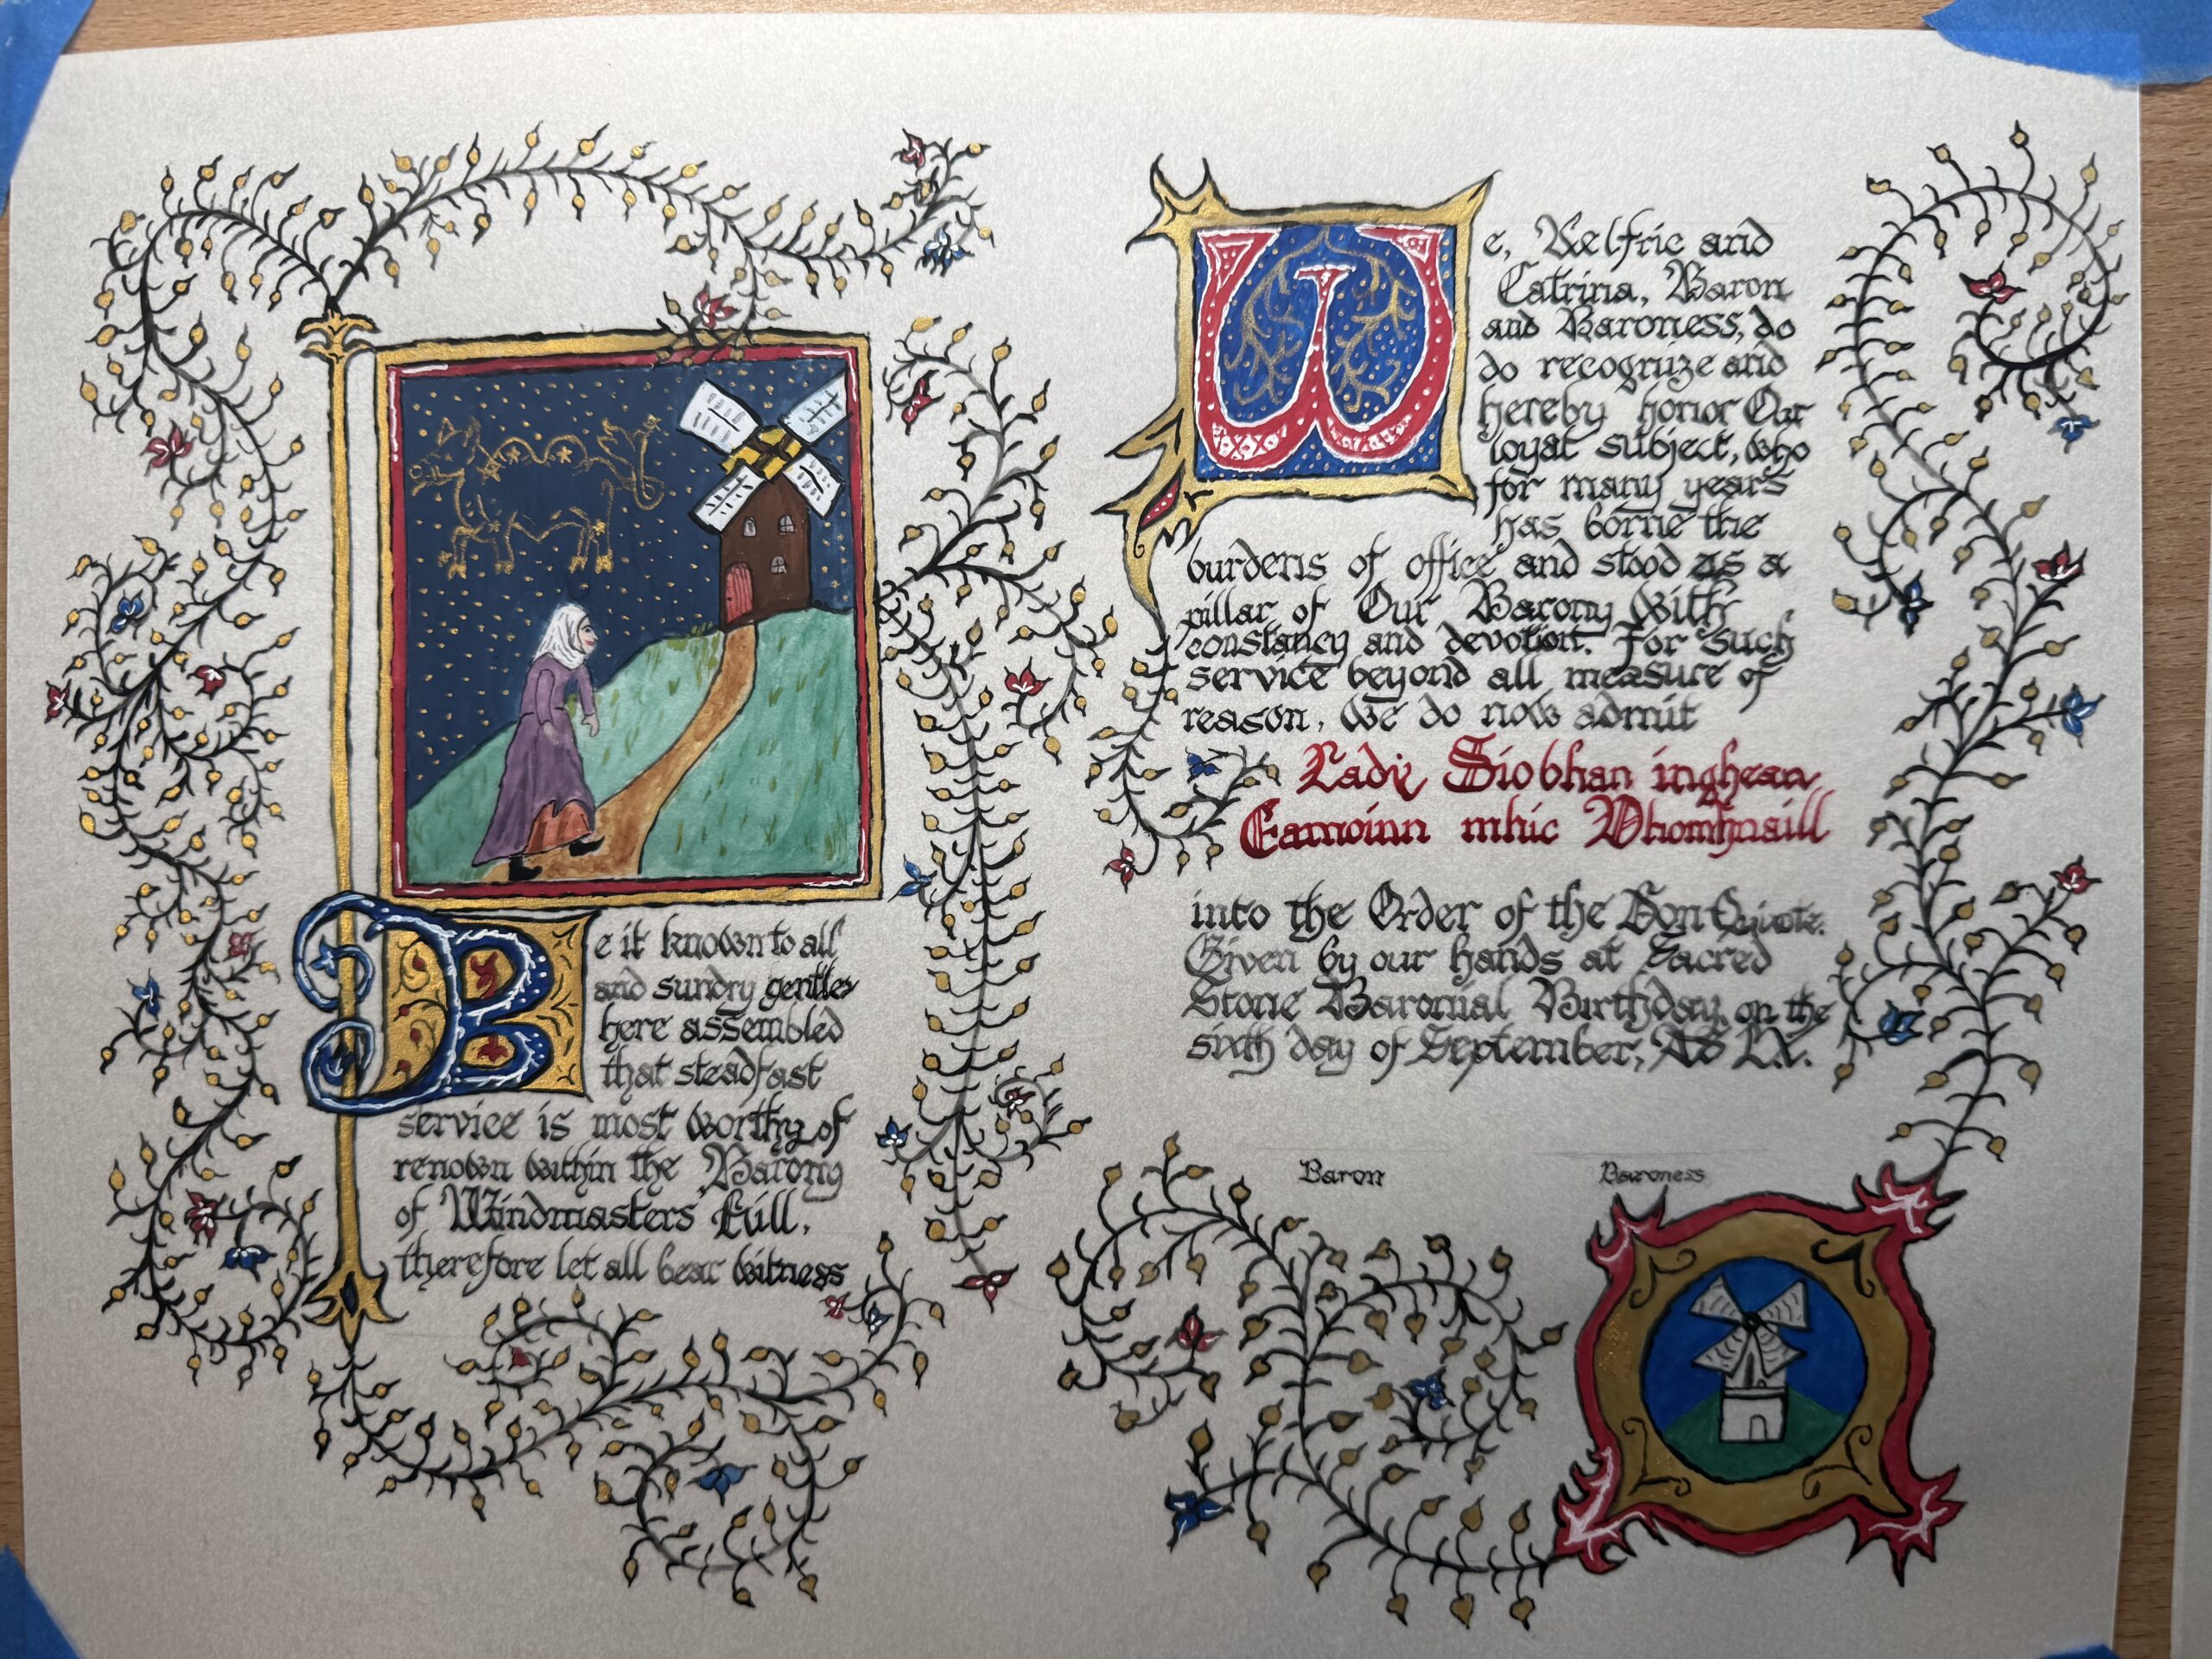 Be it known to all
and sundry gentles
here assembled
that steadfast
service is most worthy of
renown within the Barony
of Windmasters' Hill,
therefore let all bear witness
We, Aelfric and
Catrina, Baron
and Baroness, do
do recognize and
hereby honor Our
loyal subject, who
for many years
has borne the
burdens of office and stood as a
pillar of Our Barony with
constancy and devotion. For such
service beyond all measure of
reason, We do now admit
Lady Siobhan inghean
Eamoinn mhic Dhomhnaill
into the Order of the Don Quixote.
Given by our hands at Sacred
Stone Baronial Birthday, on the
sixth day of September, AS LX.
Baron
Baroness